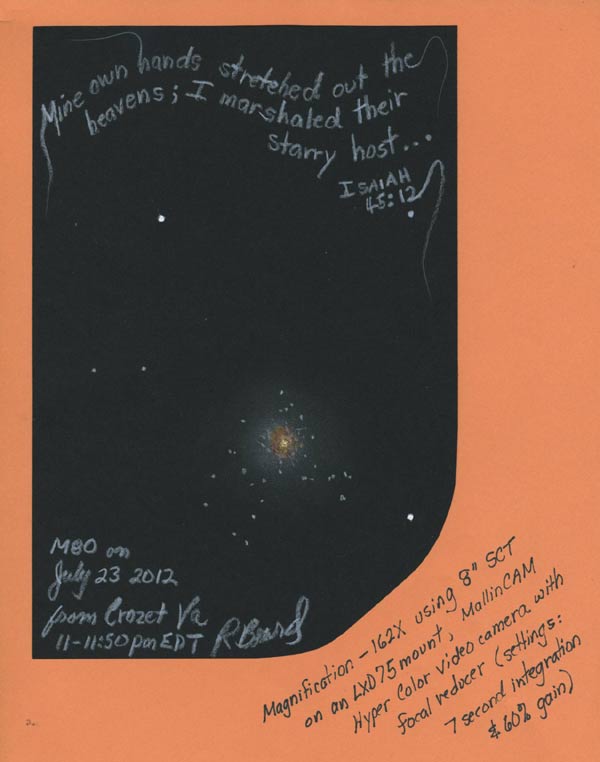 Mine own hands stretched out the
heavens; I marshaled their
starry host...
ISAIAH
45:12
M80 on
July 23 2012
from Crozet Va
11-11:50pm EDT
Magnification - 162X using 8" SCT
on an LXD75 mount, MallinCAM
Hyper Color video camera with
focal reducer (settings:
7 second integration
& 60% gain)